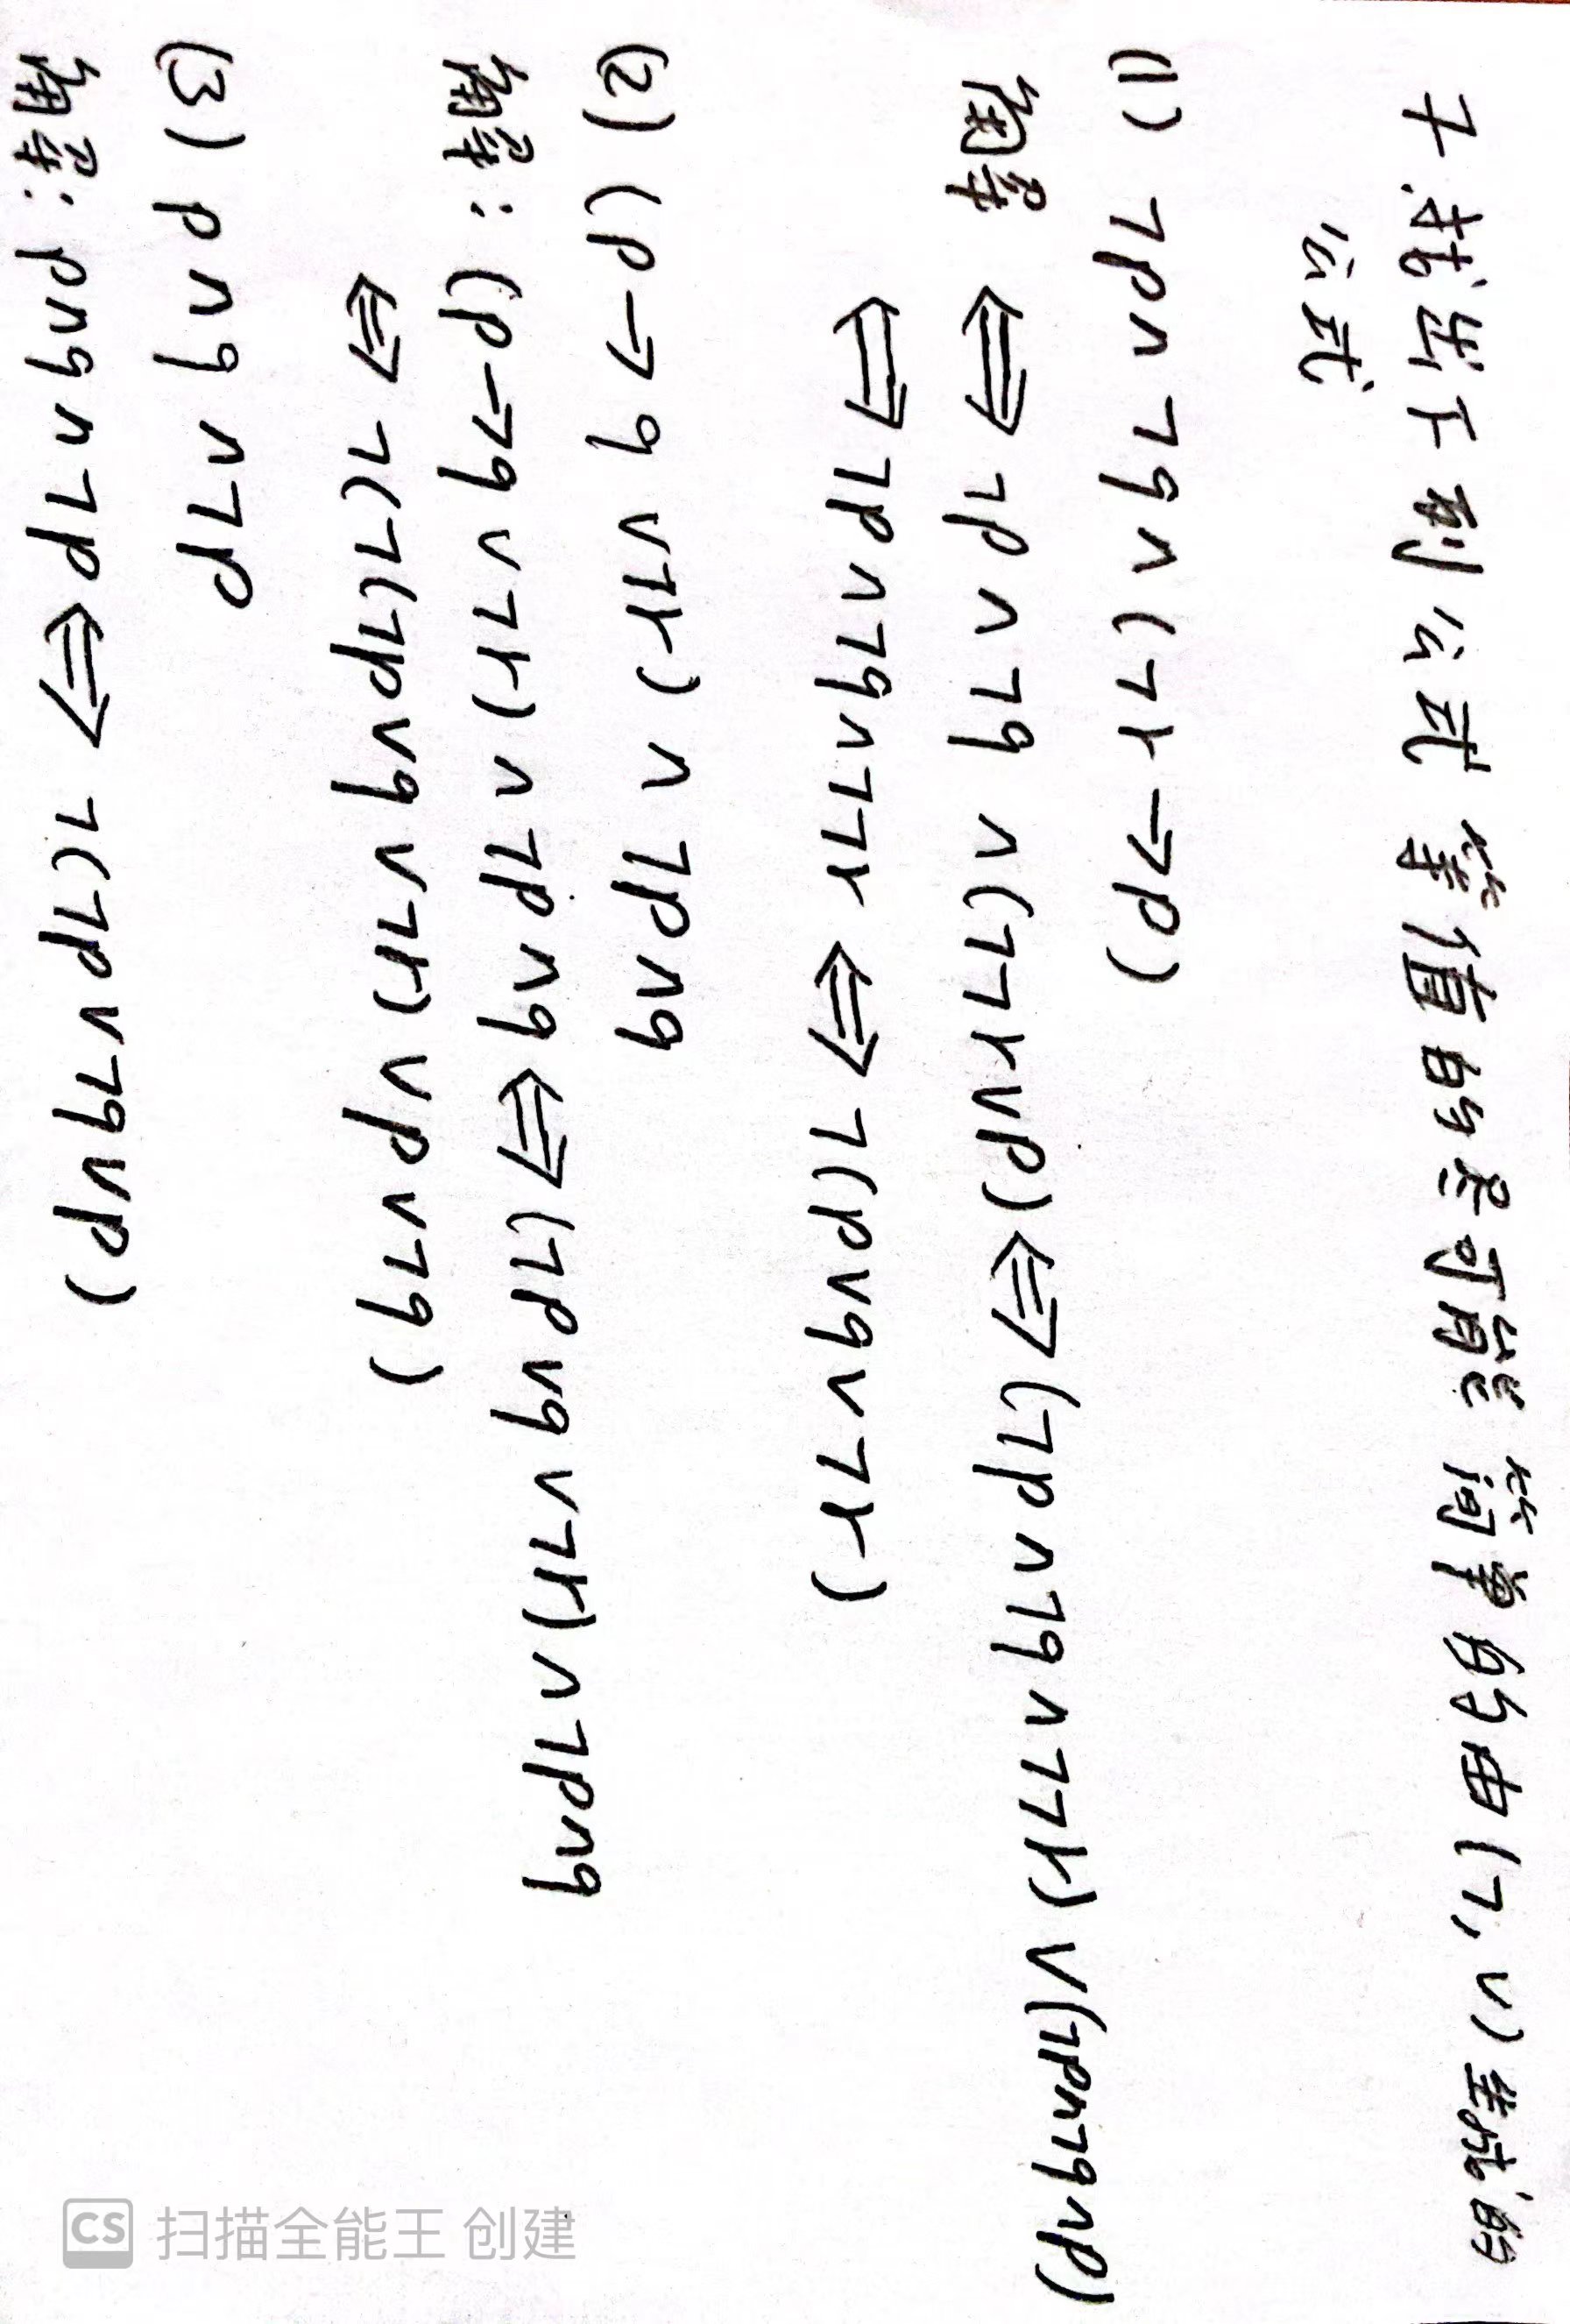 7.找出下列公式等值的尽可能简单的由{¬,∨}生成的
公式
(1) ¬p∧¬q∧(¬r→p)
解 ⇔ ¬p∧¬q∧(¬¬r∨p)⇔(¬p∧¬q∧¬¬r)∨(¬p∧¬q∧p)
⇔¬p∧¬q∧¬¬r⇔¬(p∨q∨¬r)
(2) (p→q∨¬r)∧¬p∧q
解:(p→q∨¬r)∧¬p∧q⇔(¬p∨q∨¬r)∧¬p∧q
⇔¬(¬(¬p∨q∨¬r)∨p∨¬q)
(3) p∧q∧¬p
解:p∧q∧¬p⇔¬(¬p∨¬q∨p)
CS 扫描全能王 创建